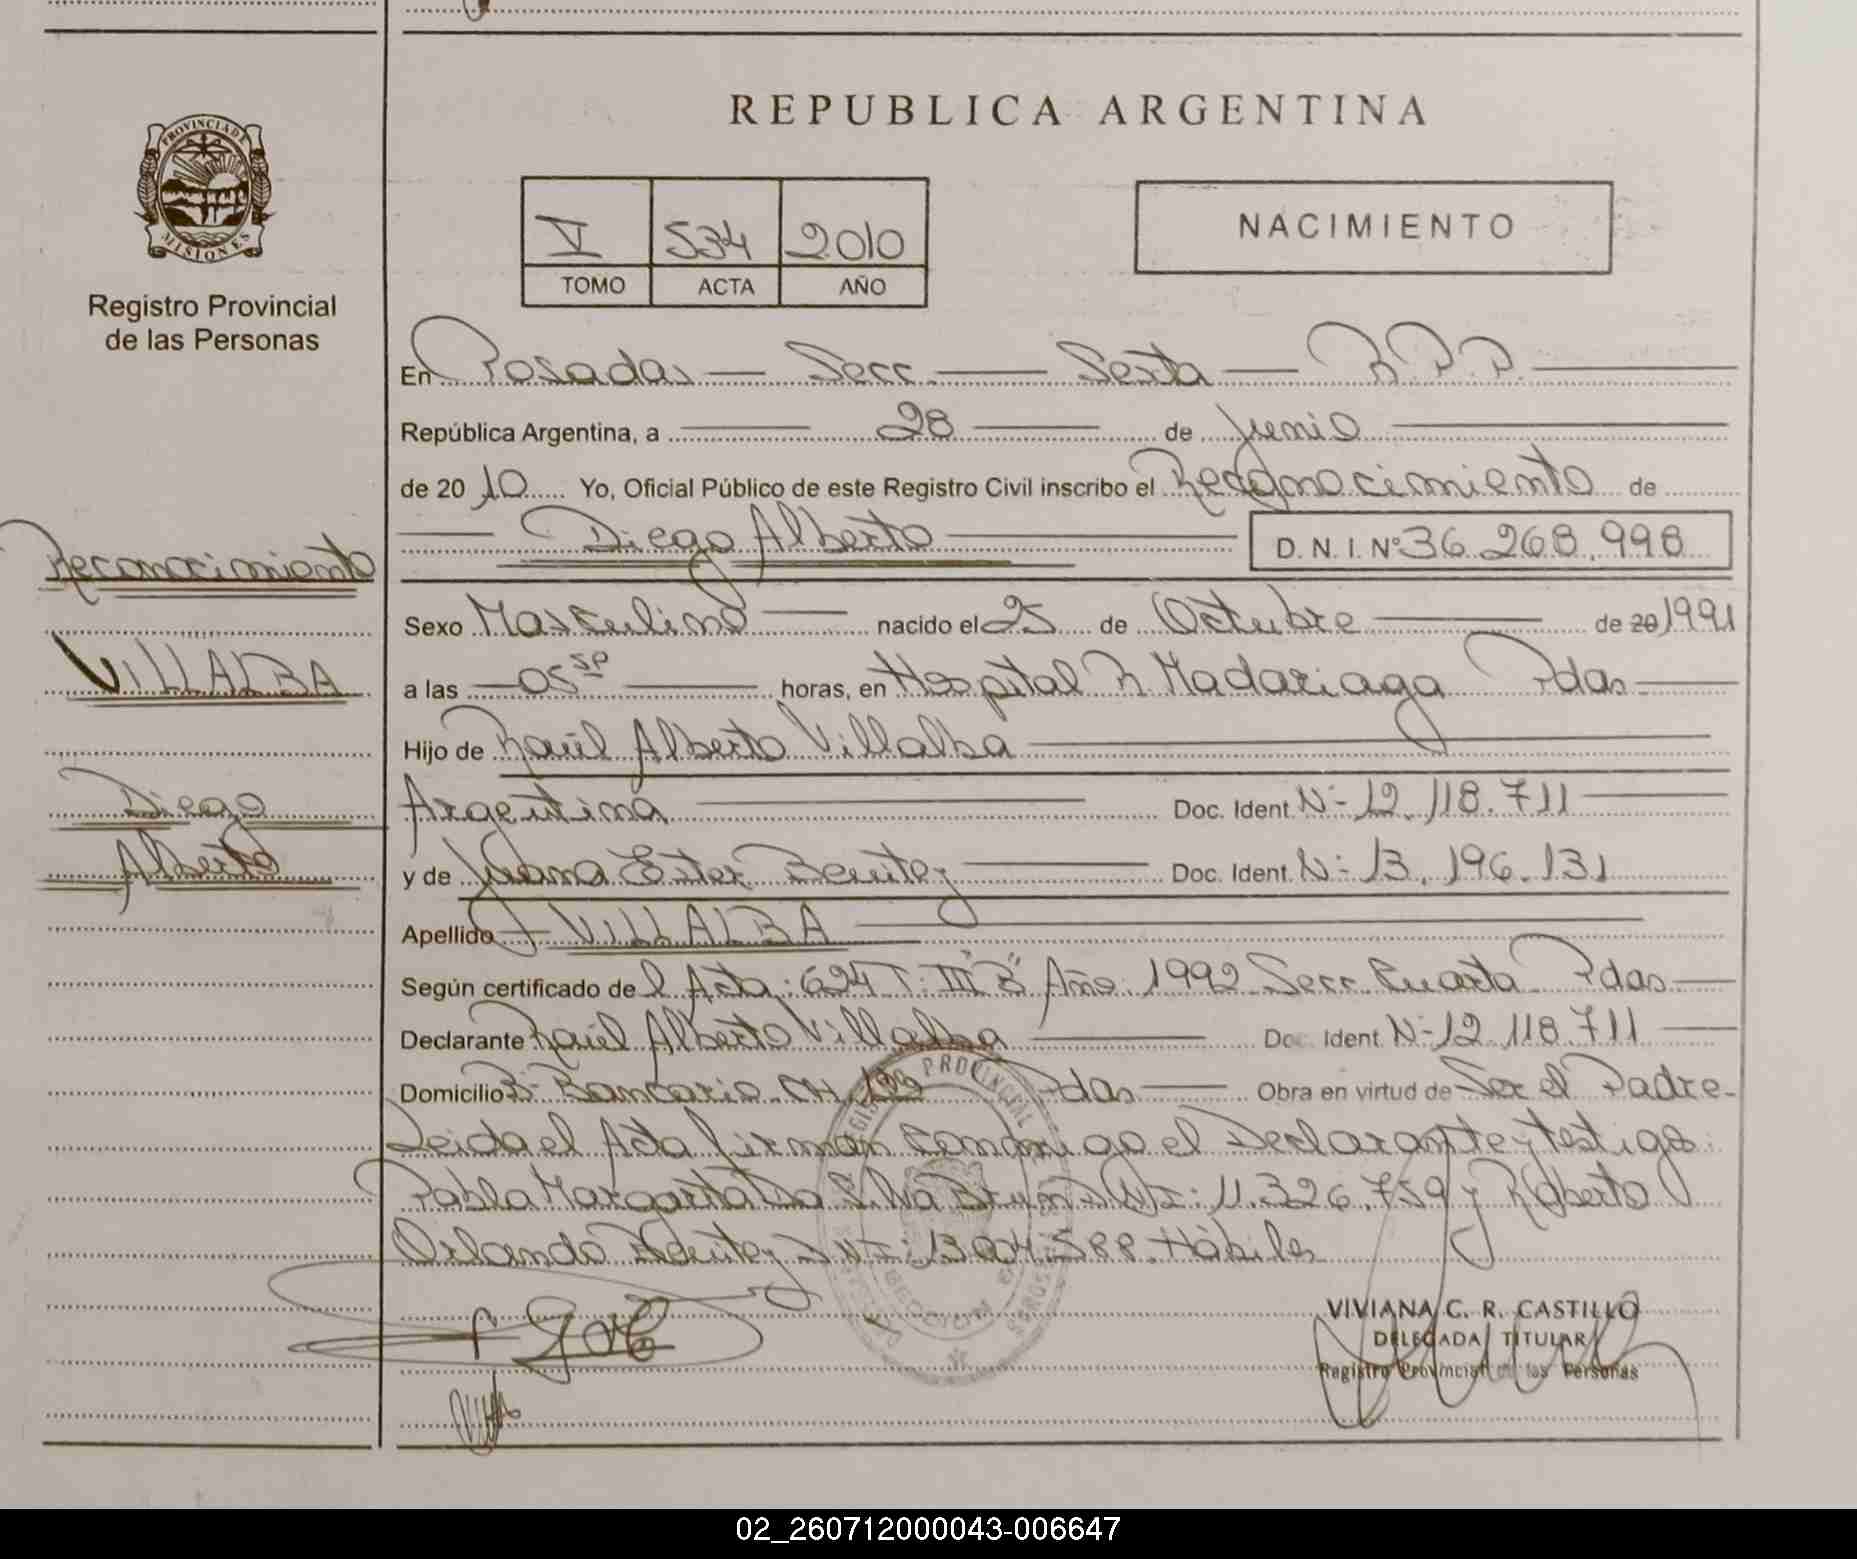 REPUBLICA ARGENTINA
PROVINCIA DE
MISIONES
Registro Provincial
de las Personas
V 534 2010
TOMO ACTA AÑO
NACIMIENTO
En Posadas — Secc. — Sexta — R.P.P. —
República Argentina, a — 28 — de Junio —
de 2010 Yo, Oficial Público de este Registro Civil inscribo el Recognocimiento de
— Diego Alberto — D. N. I. Nº 36.268.998
Reconocimiento
Sexo Masculino — nacido el 25 de Octubre — de 20 1991
VILLALBA
a las — 05 — horas, en Hospital R Madariaga Pdas —
Hijo de Raúl Alberto Villalba —
Diego
Alberto
Argentina — Doc. Ident. Nº 12.118.711 —
y de Juana Ester Benitez — Doc. Ident. Nº 13.196.131
Apellido VILLALBA —
Según certificado del Acta: 624 T: III "B" Año: 1992 Secc. Cuarta Pdas —
Declarante Raúl Alberto Villalba — Doc. Ident. Nº 12.118.711 —
Domicilio Bº Bancario CH. Pdas — Obra en virtud de Ser el Padre-
Leida el Acta firman conmigo el Declarante y testigo:
Pabla Margarita Da Silva D.N.I: 11.326.759 y Roberto
Orlando Benitez D.N.I: Hábiles
REGISTRO PROVINCIAL
VIVIANA C. R. CASTILLO
DELEGADA TITULAR
Registro Provincial de las Personas
02_260712000043-006647